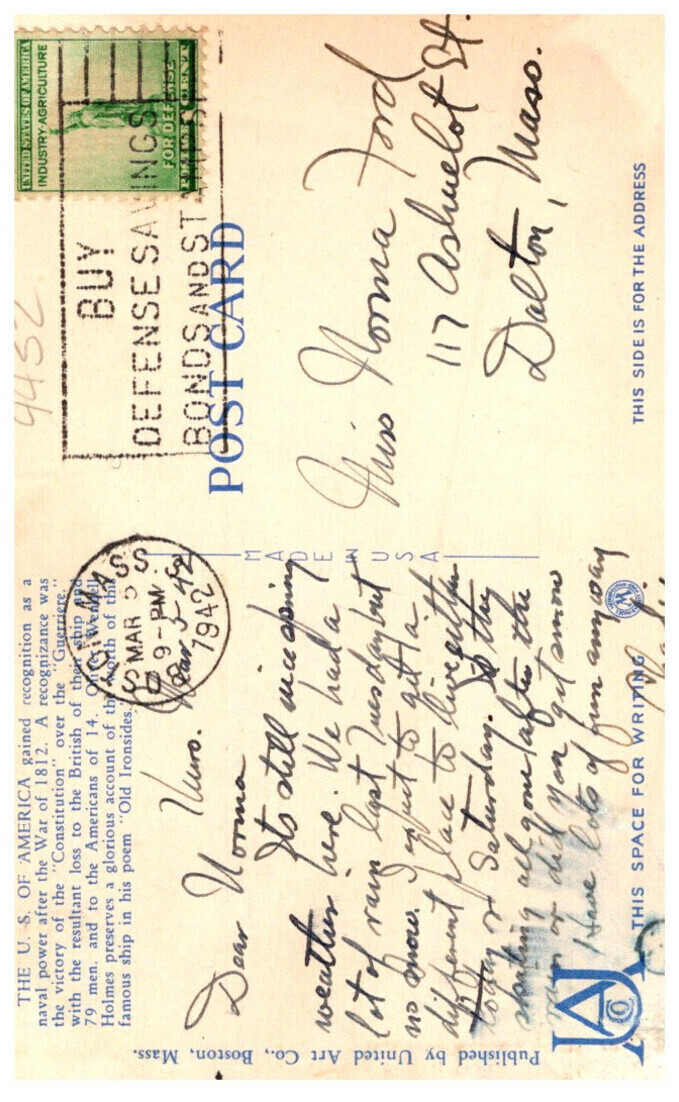 THE U. S. OF AMERICA gained recognition as a
naval power after the War of 1812. A recognizance was
the victory of the "Constitution" over the "Guerriere,"
with the resultant loss to the British of their ship and
79 men. and to the Americans of 14. Oliver Wendell
Holmes preserves a glorious account of the worth of this
famous ship in his poem "Old Ironsides."
MASS.
MAR 5
9-PM
1942
Mar 5-42
Dear Norma
Its still spring
weather here. We had a
lot of rain last Tuesday but
no snow. I expect to get a
different place to live
today or Saturday. Is the
skating all gone after the
rain or did you get snow
Have lots of fun anyway
Published by United Art Co., Boston, Mass.
THIS SPACE FOR WRITING
MADE IN USA
UNITED STATES OF AMERICA
INDUSTRY·AGRICULTURE
FOR DEFENSE
CENT
BUY
DEFENSE SAVINGS
BONDS AND STAMPS
4432
POST CARD
Miss Norma Ford
117 Ashuelot St.
Dalton, Mass.
THIS SIDE IS FOR THE ADDRESS